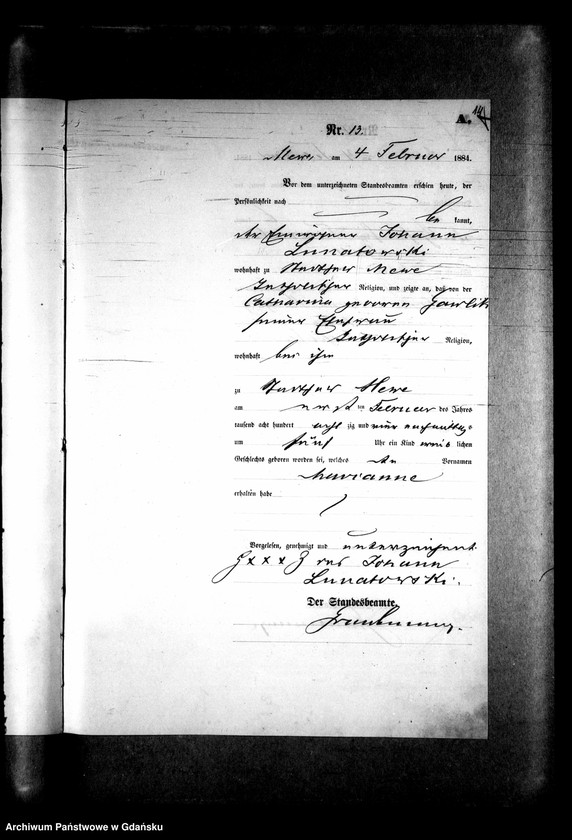 14
A.
Nr. 13.
Mewe am 4 Februar 1884.
Vor dem unterzeichneten Standesbeamten erschien heute, der
Persönlichkeit nach
be kannt,
der Einwohner Johann
Lunatowski
wohnhaft zu Stadthof Mewe
katholischer Religion, und zeigte an, daß von der
Catharina geborenen Gawlik
seiner Ehefrau
katholischer Religion,
wohnhaft bei ihm
zu Stadthof Mewe
am ersten Februar des Jahres
tausend acht hundert acht zig und vier
um fünf Uhr ein Kind weib lichen
Geschlechts geboren worden sei, welches den Vornamen
Marianne
erhalten habe
Vorgelesen, genehmigt und unterzeichnet
xxx des Johann
Lunatowski.
Der Standesbeamte.
Archiwum Państwowe w Gdańsku